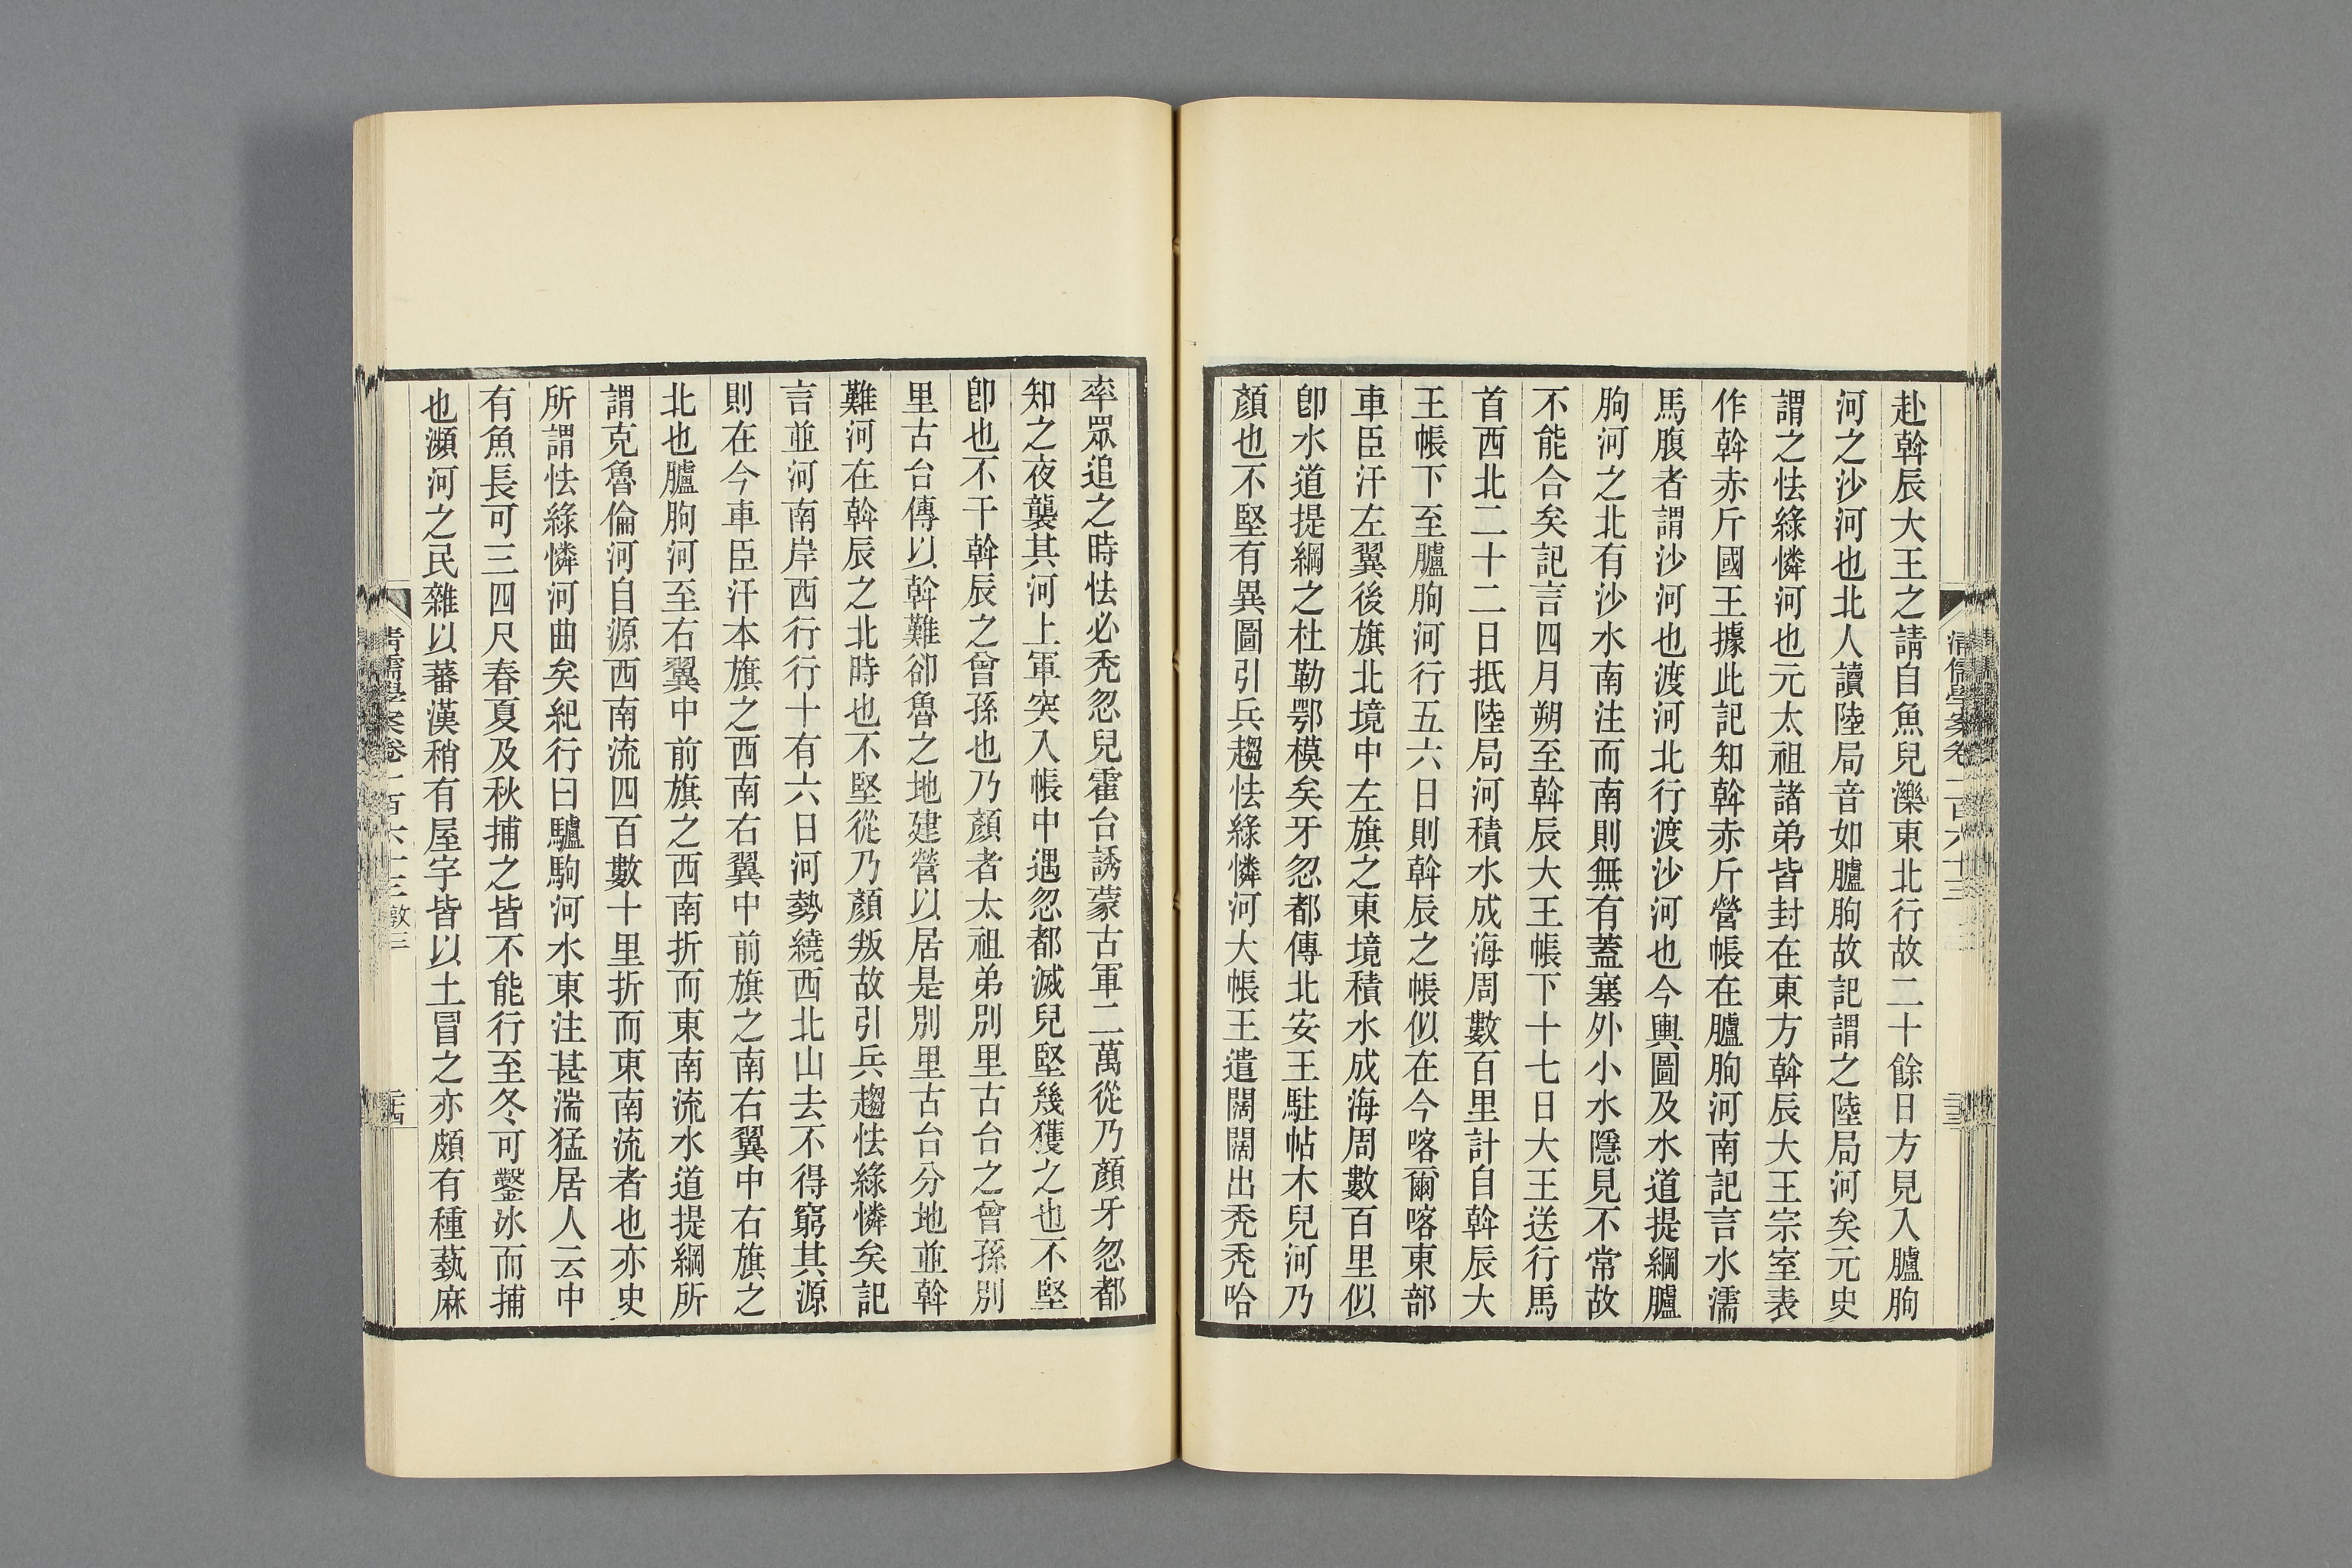 清儒學案卷一百六十三
赴斡辰大王之請自魚兒濼東北行故二十餘日方見入臚朐
河之沙河也北人讀陸局音如臚朐故記謂之陸局河矣元史
謂之怯綠憐河也元太祖諸弟皆封在東方斡辰大王宗室表
作斡赤斤國王據此記知斡赤斤營帳在臚朐河南記言水濡
馬腹者謂沙河也渡河北行渡沙河也今輿圖及水道提綱臚
朐河之北有沙水南注而南則無有蓋塞外小水隱見不常故
不能合矣記言四月朔至斡辰大王帳下十七日大王送行馬
首西北二十二日抵陸局河積水成海周數百里計自斡辰大
王帳下至臚朐河行五六日則斡辰之帳似在今喀爾喀東部
車臣汗左翼後旗北境中左旗之東境積水成海周數百里似
卽水道提綱之杜勒鄂模矣牙忽都傳北安王駐帖木兒河乃
顏也不堅有異圖引兵趨怯綠憐河大帳王遣闊闊出禿禿哈
率眾追之時怯必禿忽兒霍台誘蒙古軍二萬從乃顏牙忽都
知之夜襲其河上軍突入帳中遇忽都滅兒堅幾獲之也不堅
卽也不干斡辰之曾孫也乃顏者太祖弟別里古台之曾孫別
里古台傳以斡難卻魯之地建營以居是別里古台分地並斡
難河在斡辰之北時也不堅從乃顏叛故引兵趨怯綠憐矣記
言並河南岸西行行十有六日河勢繞西北山去不得窮其源
則在今車臣汗本旗之西南右翼中前旗之南右翼中右旗之
北也臚朐河至右翼中前旗之西南折而東南流水道提綱所
謂克魯倫河自源西南流四百數十里折而東南流者也亦史
所謂怯綠憐河曲矣紀行曰驢駒河水東注甚湍猛居人云中
有魚長可三四尺春夏及秋捕之皆不能行至冬可鑿冰而捕
也瀕河之民雜以蕃漢稍有屋宇皆以土冒之亦頗有種蓺麻
清儒學案卷一百六十三 敦三